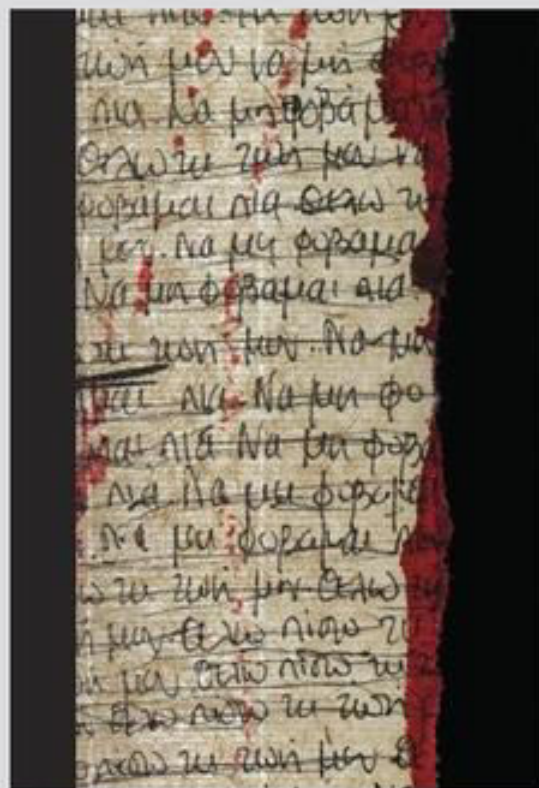 πια. τη ζωή
ζωή μου να μη φοβ
πια. Να μη φοβάμαι
Θέλω τη ζωή μου να
φοβάμαι πια Θέλω τη
μου. Να μη φοβάμαι
Να μη φοβάμαι πια.
τη ζωή μου. Να μη
μαι πια. Να μη φο
μαι πιά Να μη φοβα
πια. Να μη φοβάμαι
να μη φοβαμαι
ω τη ζωή μου Θέλω τη
μου Θέλω πίσω τη
μου. Θέλω πίσω τη ζ
Θέλω πίσω τη ζωή μ
πίσω τη ζωή μου Θ